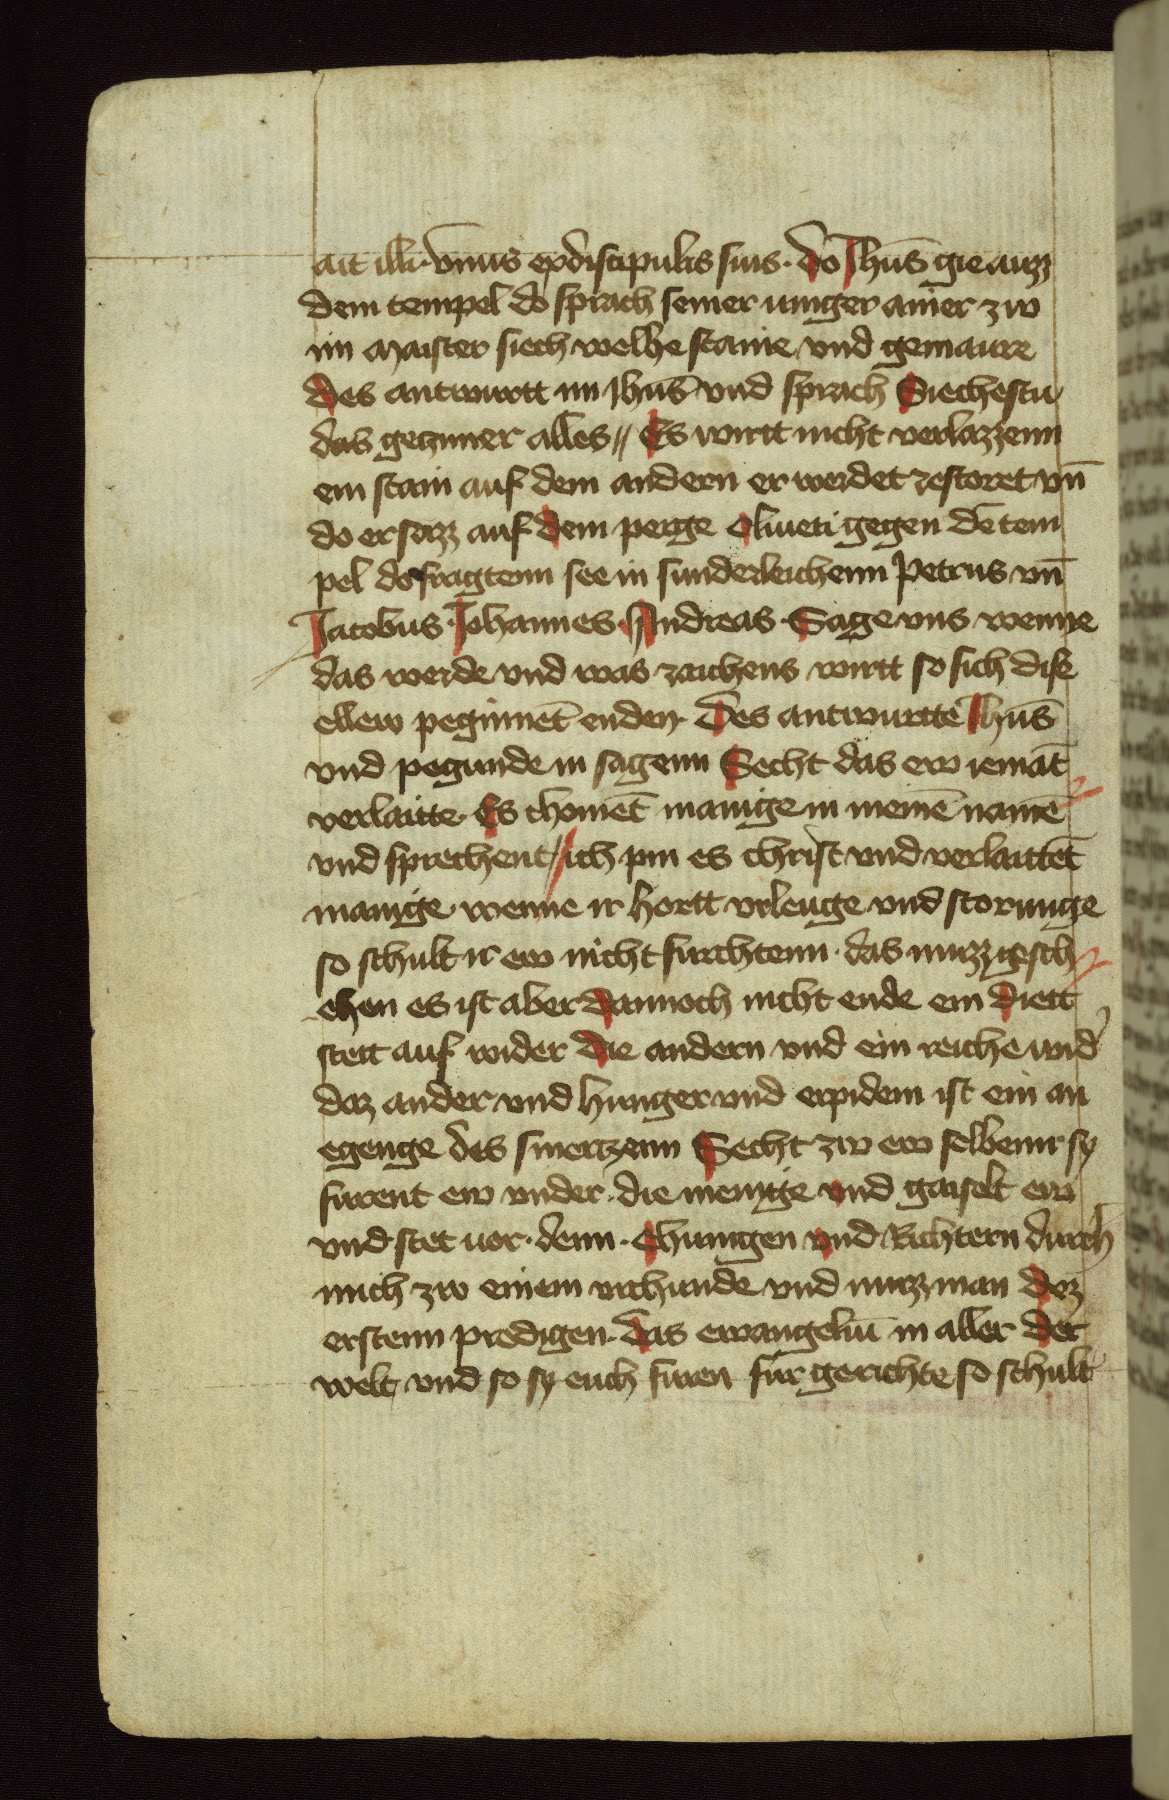 ait illi · vnus ex discipulis suis · do Jhūs gie auzz
dem tempel do sprach seiner iunger ainer zw
im Maister siech welhe staine vnd gemaure
des antwurtt im Jhūs vnd sprach Siechestu
das gezimer alles // Es wirtt nicht verlazzenn
ein stain auf dem andern er werdet zestoret vn̄
do er sazz auf dem perge oliueti gegen dē tem
pel do fragtenn see in sunderleichenn Petrus vn̄
Jacobus · Johannes · Andreas · Sage vns wenne
das werde vnd was zaichens wirtt so sich dise
ellew peginnēt enden · Des antwurtte Jhūs
vnd pegunde in sagenn Secht das ew iemāt
verlaitte · Es chomēt manige in meinē namē
vnd sprechent / ich pin es christ vnd verlaittēt
manige · wenne ir hortt vrleuge vnd storunge
so schult ir ew nicht furchtenn · das muzz gesch
ehen es ist aber dannoch nicht ende ein diett
stett auf wider die andern vnd ein reiche wid̄
daz ander vnd hunger vnd erpidem ist ein an
egenge des smertzenn Secht zw ew selbenn · sy
furent ew vnder · die menige vnd gaiselt ew
vnd stet uor · denn · Chunigen vnd Richtern durch
mich zw einem vrchunde vnd muzz man dez
erstenn predigen · das ewangeliū in aller der
welt vnd so sy euch furen fur gerichte so schult